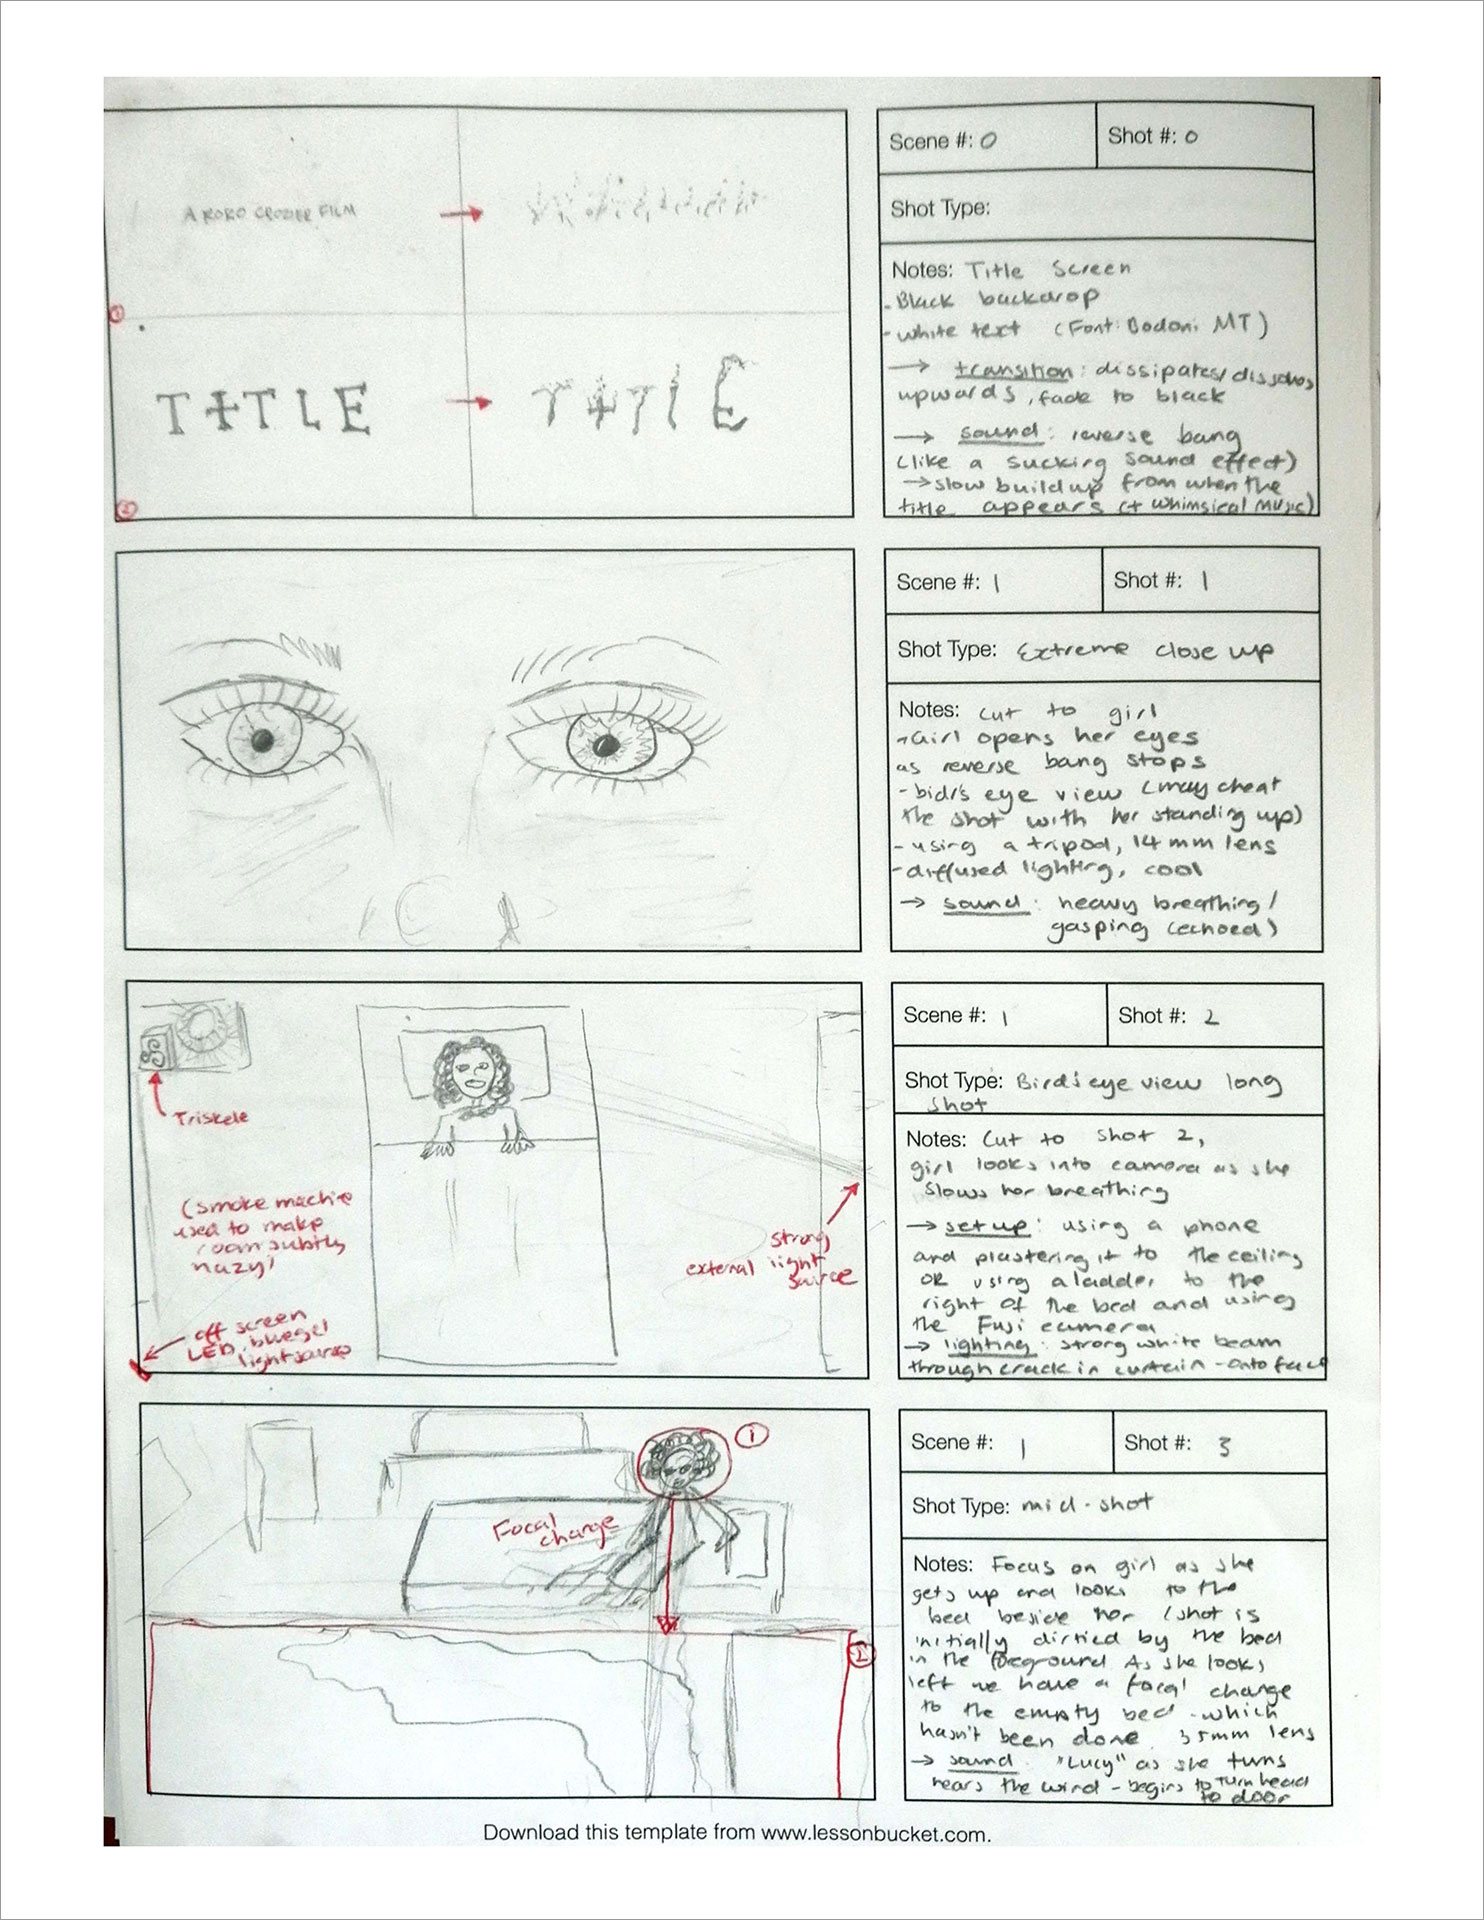 A KORO CROZIER FILM
1
TITLE
TITLE
2
Scene #: 0
Shot #: 0
Shot Type:
Notes: Title Screen
- Black backdrop
- white text (Font: Bodoni MT)
→ transition: dissipates/dissolves
upwards, fade to black
→ sound: reverse bang
(like a sucking sound effect)
→ slow build up from when the
title appears (+ whimsical music)
Scene #: 1
Shot #: 1
Shot Type: Extreme close up
Notes: cut to girl
- Girl opens her eyes
as reverse bang stops
- bidr's eye view (may cheat
the shot with her standing up)
- using a tripod, 14mm lens
- diffused lighting, cool
→ sound: heavy breathing/
gasping (echoed)
Triskele
(smoke machine
used to make
room subtly
hazy)
off screen
LED, bluegel
lightsource
strong
external light
source
Scene #: 1
Shot #: 2
Shot Type: Bird's eye view long
shot
Notes: Cut to shot 2,
girl looks into camera as she
slows her breathing
→ set up: using a phone
and plastering it to the ceiling
OR using a ladder to the
right of the bed and using
the Fuji camera
→ lighting: strong white beam
through crack in curtain - onto face
1
Focal
change
2
Scene #: 1
Shot #: 3
Shot Type: mid-shot
Notes: Focus on girl as she
gets up and looks to the
bed beside her (shot is
initially dirtied by the bed
in the foreground As she looks
left we have a focal change
to the empty bed - which
hasn't been done. 35mm lens
→ sound: "Lucy" as she turns
hears the wind - begins to turn head
to door
Download this template from www.lessonbucket.com.